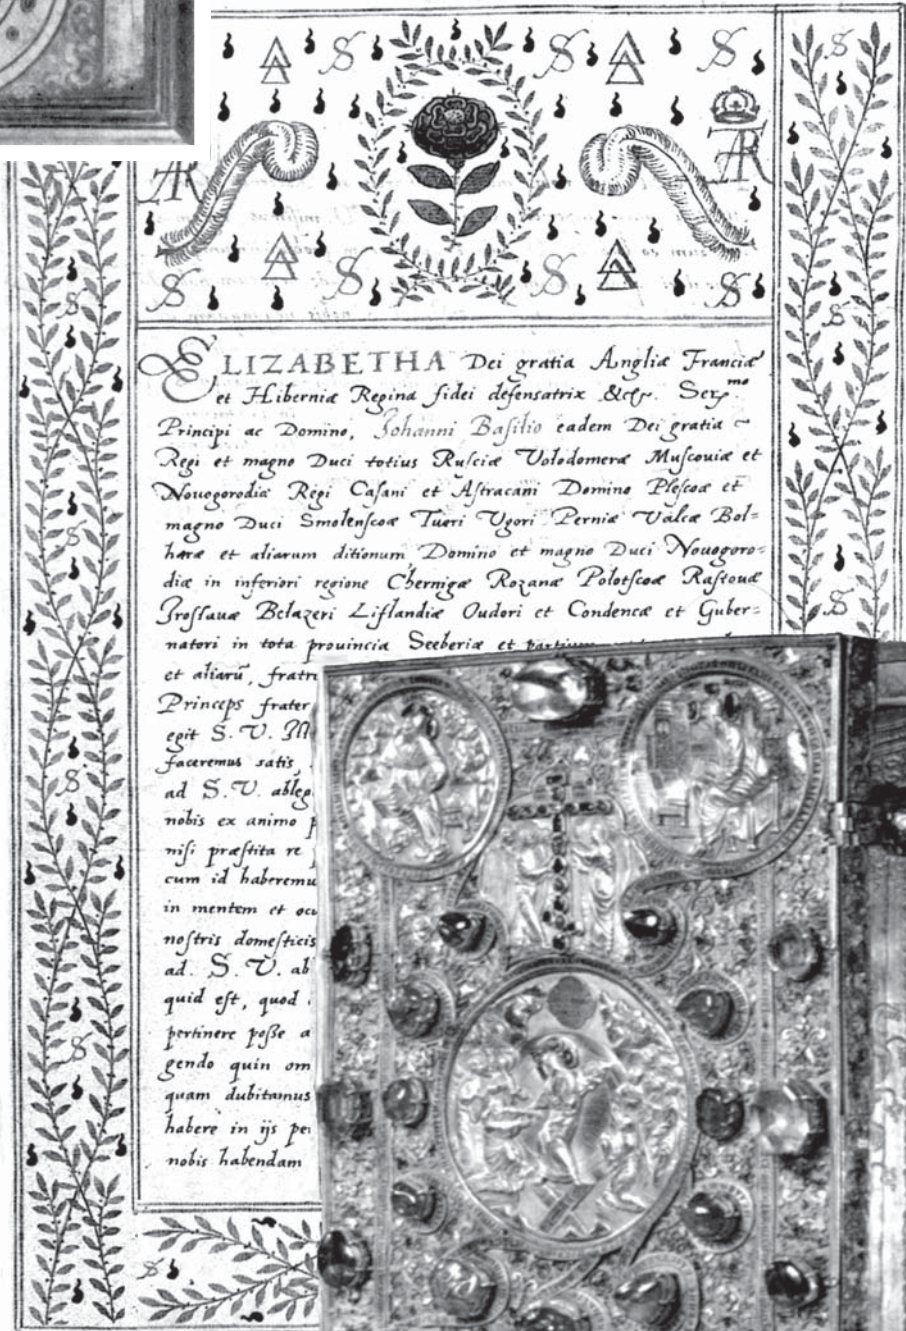 ELIZABETHA Dei gratia Angliæ Franciæ
et Hiberniæ Regina fidei defensatrix &c. Ser.mo
Principi ac Domino, Johanni Basilio eadem Dei gratia
Regi et magno Duci totius Rusciæ Volodomeræ Muscoviæ et
Novogorodiæ Regi Casani et Astracani Domino Plescoæ et
magno Duci Smolenscoæ Tueri Vgori Permiæ Valcæ Bol=
haræ et aliarum ditionum Domino et magno Duci Novogoro=
diæ in inferiori regione Chernigæ Rozanæ Polotscoæ Rastouæ
Jrossauæ Belazeri Liflandiæ Oudori et Condencæ et Guber=
natori in tota provincia Seeberiæ et
et aliarū, fratri
Princeps frater
egit S. V.
faceremus satis
ad S. V. ableg
nobis ex animo
nisi præstita re
cum id haberemu
in mentem et ocu
nostris domesticis
ad. S. V. ab
quid est, quod
pertinere poſſe a
gendo quin om
quam dubitamus
habere in ijs pe
nobis habendam